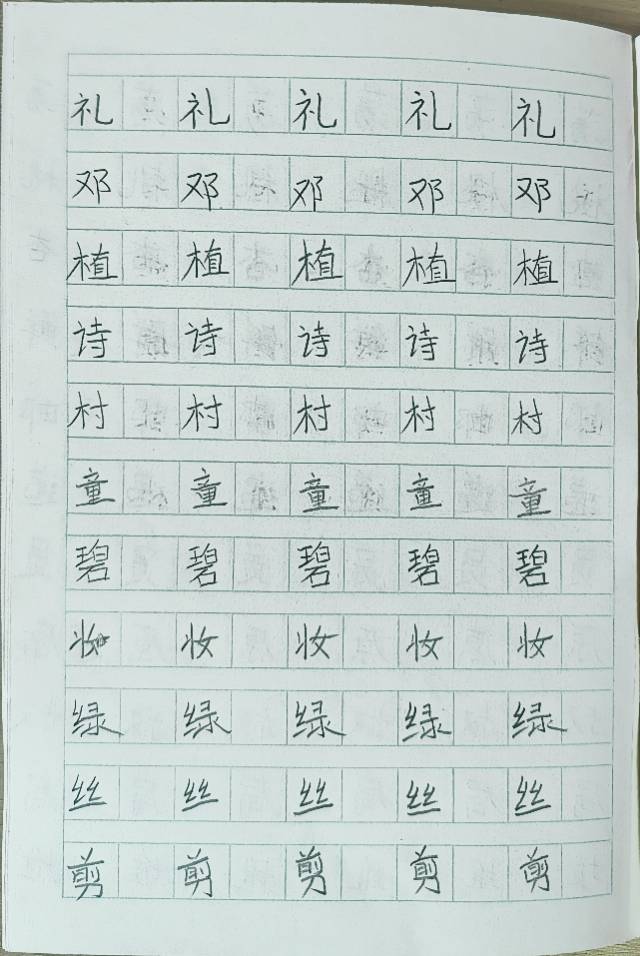 礼 礼 礼 礼 礼
邓 邓 邓 邓 邓
植 植 植 植 植
诗 诗 诗 诗 诗
村 村 村 村 村
童 童 童 童 童
碧 碧 碧 碧 碧
妆 妆 妆 妆 妆
绿 绿 绿 绿 绿
丝 丝 丝 丝 丝
剪 剪 剪 剪 剪